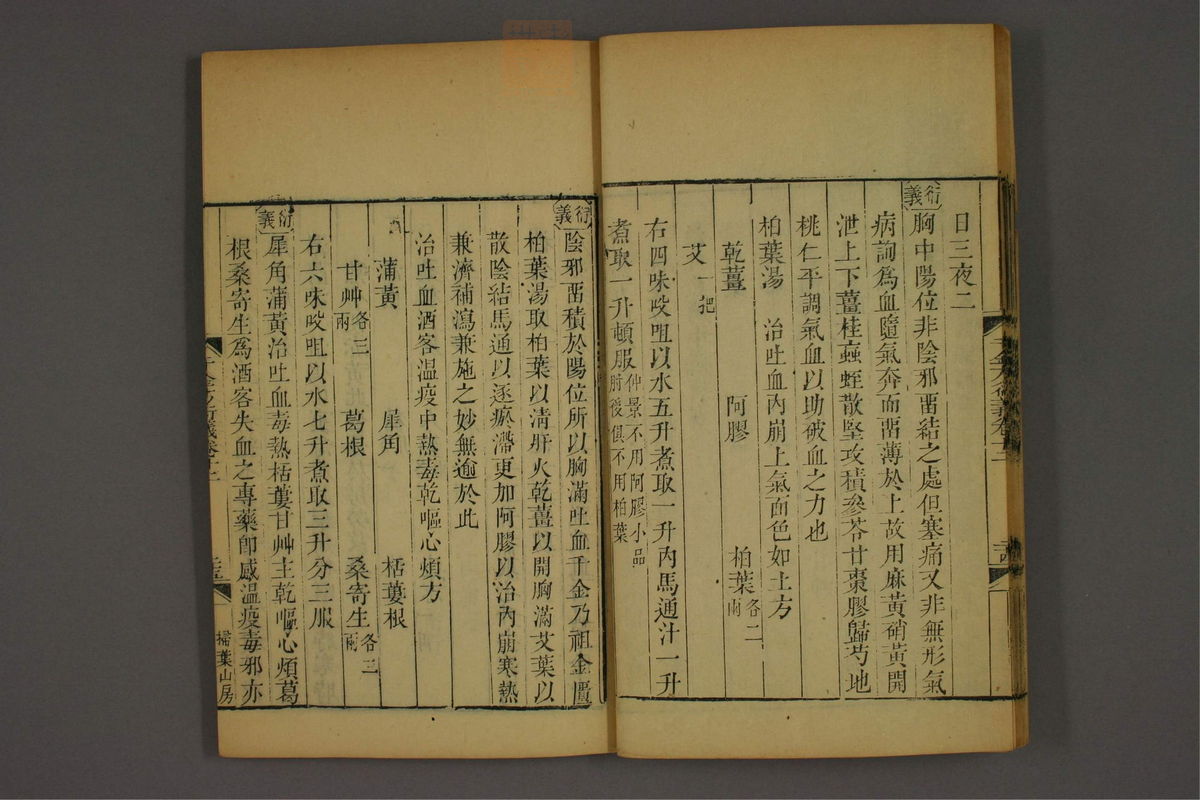 日三夜二
衍義
胸中陽位非陰邪畱結之處但塞痛又非無形氣
病詢爲血隨氣奔而畱薄於上故用麻黃硝黃開
泄上下薑桂蟲蛭散堅攻積參苓甘棗膠歸芍地
桃仁平調氣血以助破血之力也
柏葉湯 治吐血內崩上氣面色如土方
乾薑 阿膠 柏葉各二兩
艾一把
右四味㕮咀以水五升煮取一升內馬通汁一升
煮取一升頓服仲景不用阿膠小品肘後俱不用柏葉
衍義
陰邪畱積於陽位所以胸滿吐血千金乃祖金匱
柏葉湯取柏葉以淸肝火乾薑以開胸滿艾葉以
散陰結馬通以逐瘀滯更加阿膠以治內崩寒熱
兼濟補瀉兼施之妙無逾於此
治吐血酒客溫疫中熱毒乾嘔心煩方
蒲黃 犀角 栝蔞根
甘艸各三兩 葛根 桑寄生各三兩
右六味㕮咀以水七升煮取三升分三服
衍義
犀角蒲黃治吐血毒熱栝蔞甘艸主乾嘔心煩葛
根桑寄生爲酒客失血之專藥卽感溫疫毒邪亦
掃葉山房